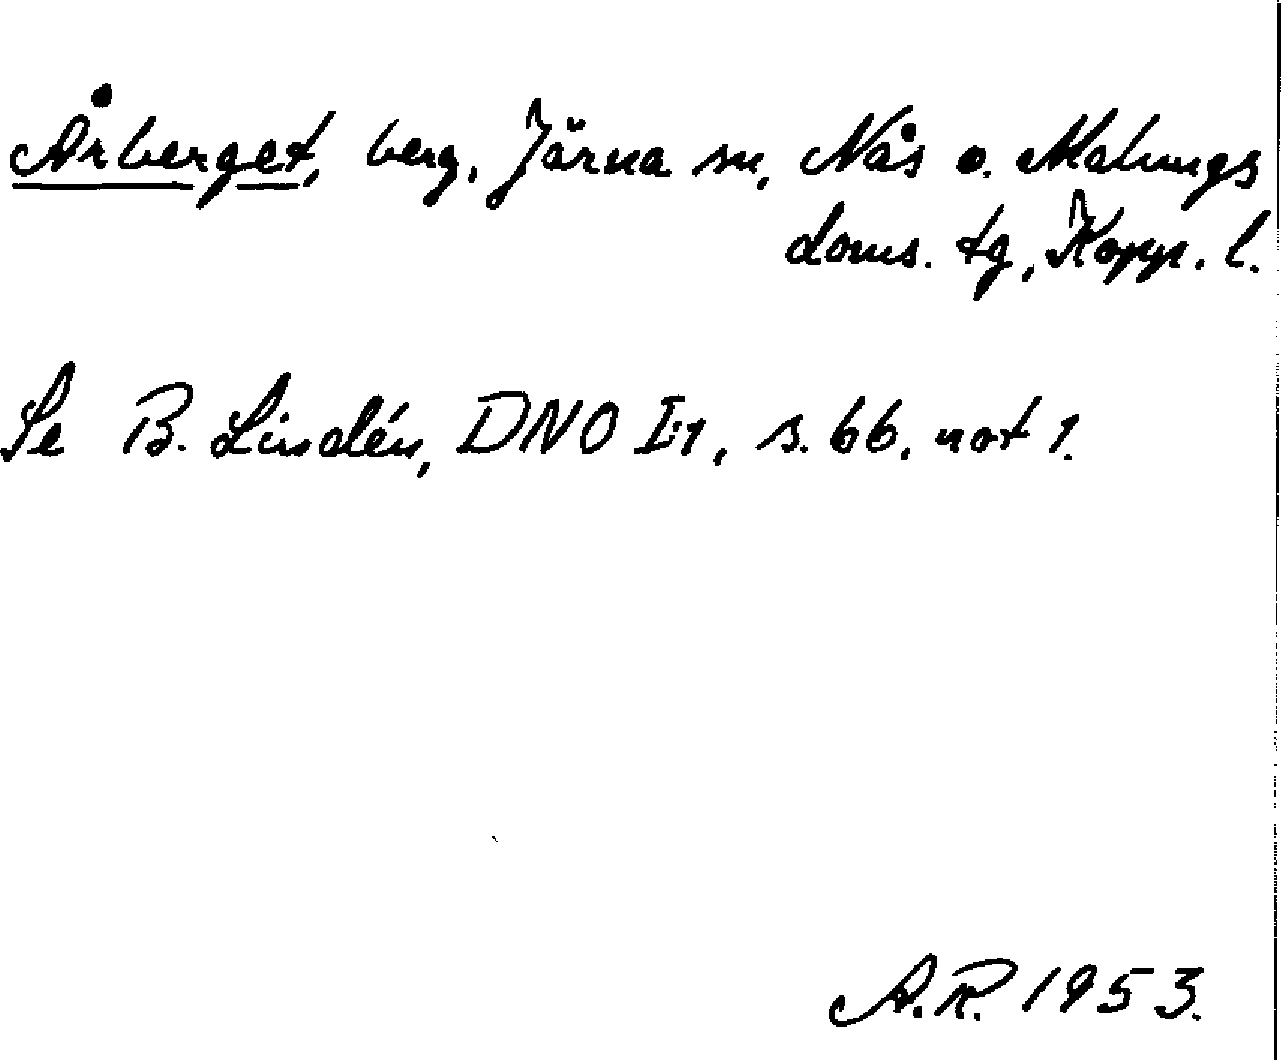 Årberget, berg, Järna sn, Nås o. Malungs
doms. tg, Kopp. l.
Se B. Lindén, DNO I:1, s. 66, not 1.
A.R. 1953.